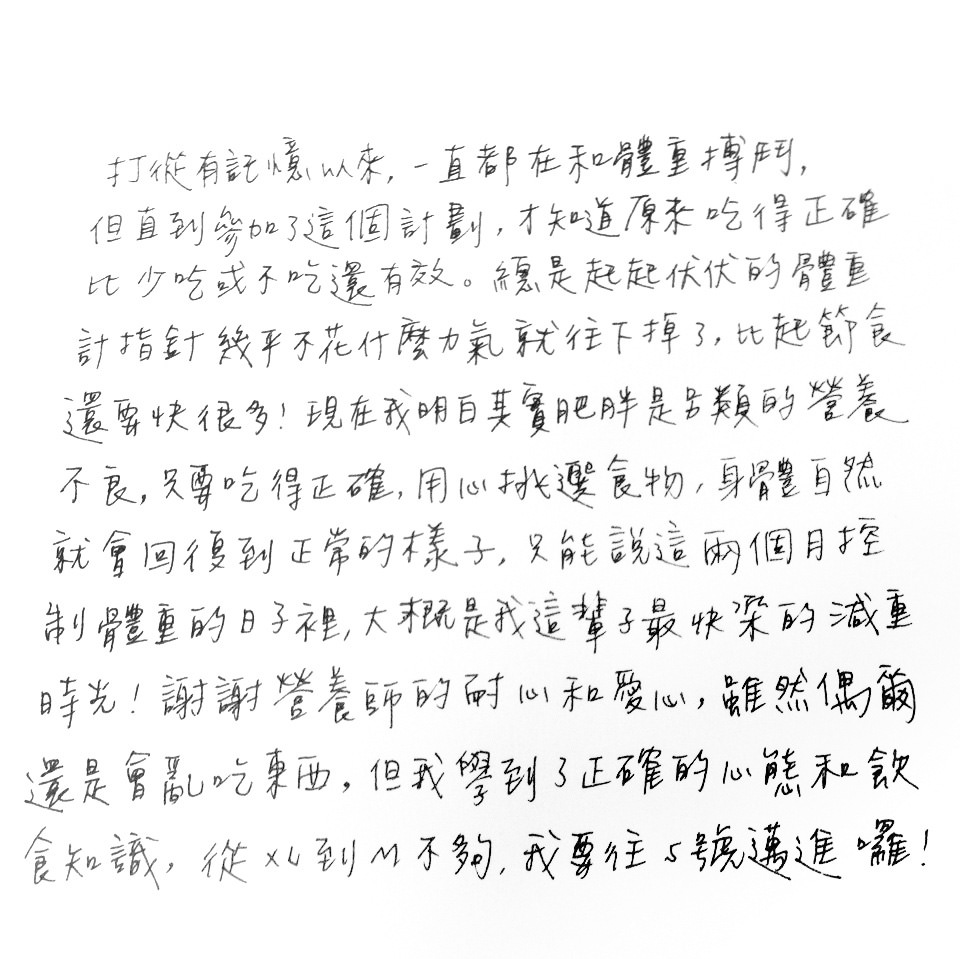 打從有記憶以來，一直都在和體重搏鬥，
但直到參加了這個計劃，才知道原來吃得正確
比少吃或不吃還有效。總是起起伏伏的體重
計指針幾乎不花什麼力氣就往下掉了，比起節食
還要快很多！現在我明白其實肥胖是另類的營養
不良，只要吃得正確，用心挑選食物，身體自然
就會回復到正常的樣子，只能說這兩個月控
制體重的日子裡，大概是我這輩子最快樂的減重
時光！謝謝營養師的耐心和愛心，雖然偶爾
還是會亂吃東西，但我學到了正確的心態和飲
食知識，從XL到M不夠，我要往S號邁進囉！